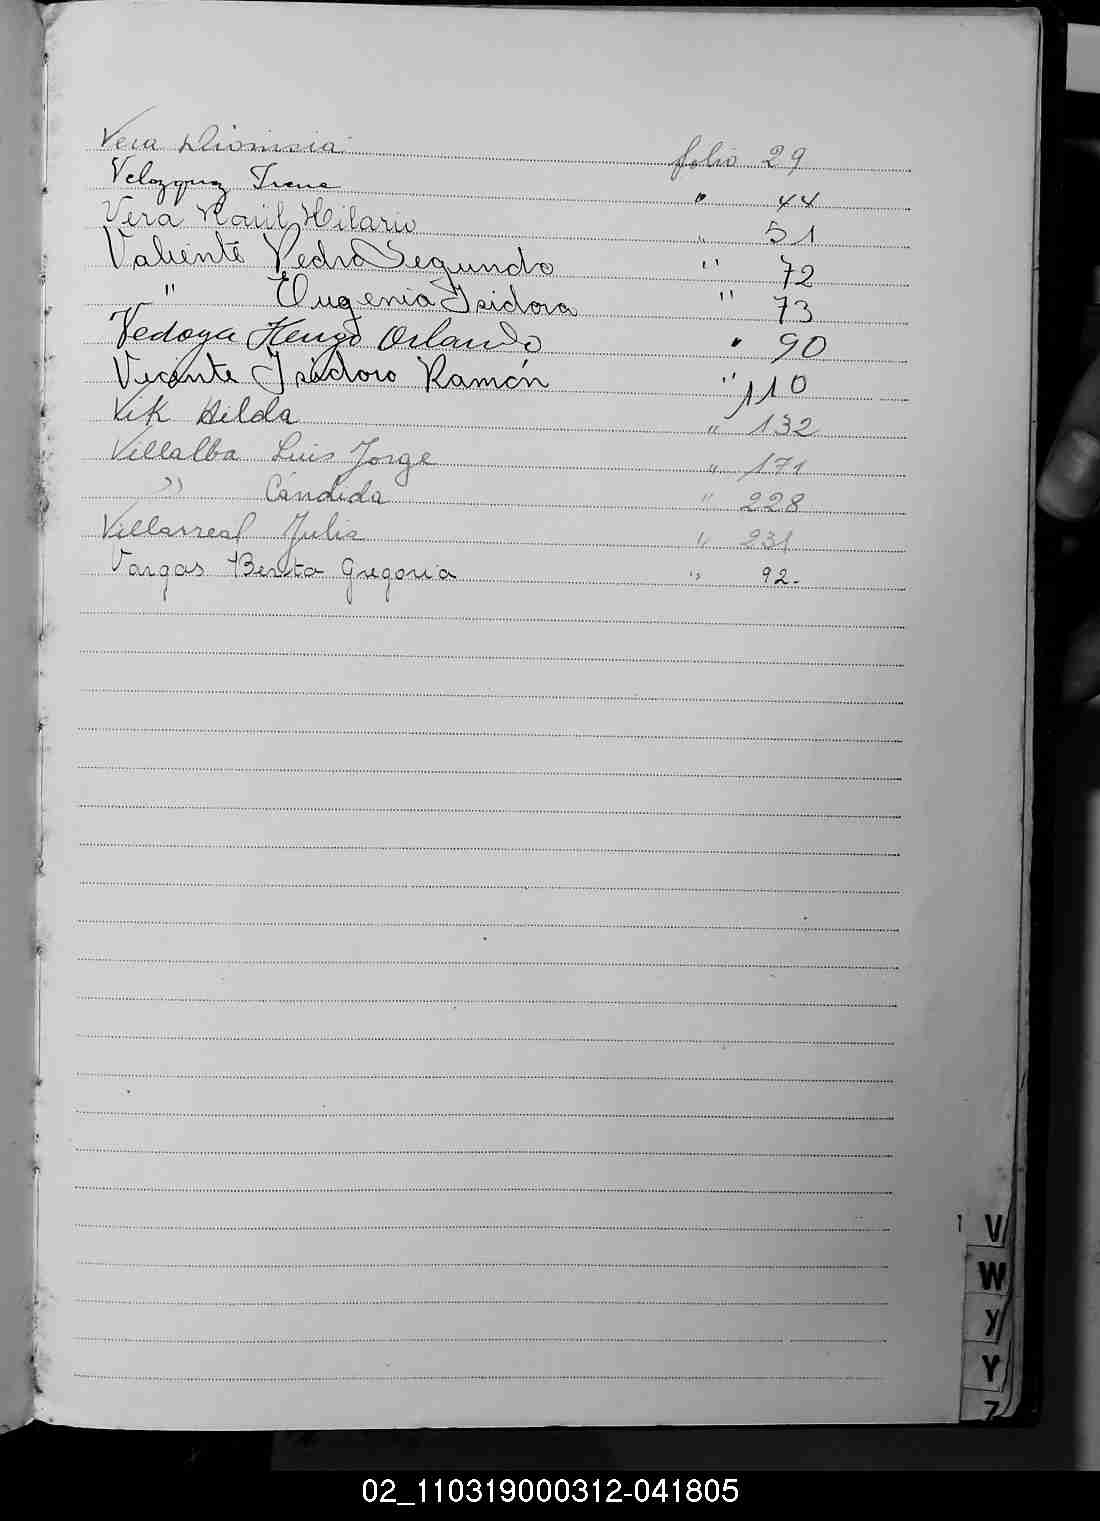 Vera Dionisia folio 29
Velozquez Irene " 44
Vera Raúl Hilario " 51
Valiente Pedro Segundo " 72
" Eugenia Isidora " 73
Vedoya Hugo Orlando " 90
Vicente Isidoro Ramón " 110
Vik Hilda " 132
Villalba Luis Jorge " 171
" Candida " 228
Villarreal Julia " 231
Vargas Benita Gregoria " 92.
V
W
Y
Y
Z
02_110319000312-041805